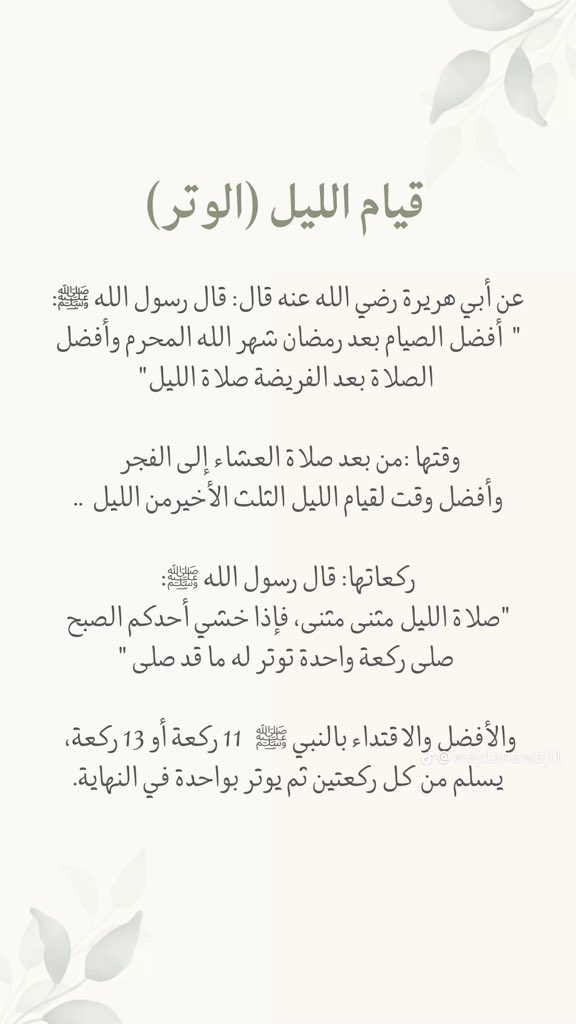 قيام الليل (الوتر)
عن أبي هريرة رضي الله عنه قال: قال رسول الله ﷺ:
" أفضل الصيام بعد رمضان شهر الله المحرم وأفضل
الصلاة بعد الفريضة صلاة الليل"
وقتها :من بعد صلاة العشاء إلى الفجر
وأفضل وقت لقيام الليل الثلث الأخيرمن الليل ..
ركعاتها: قال رسول الله ﷺ:
"صلاة الليل مثنى مثنى، فإذا خشي أحدكم الصبح
صلى ركعة واحدة توتر له ما قد صلى "
والأفضل والاقتداء بالنبي ﷺ 11 ركعة أو 13 ركعة،
يسلم من كل ركعتين ثم يوتر بواحدة في النهاية.